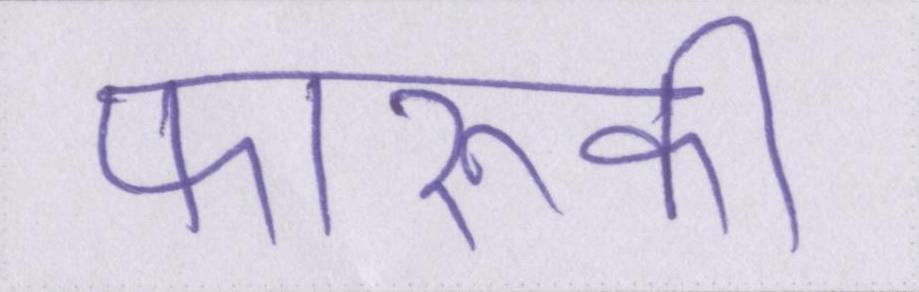 फारूकी